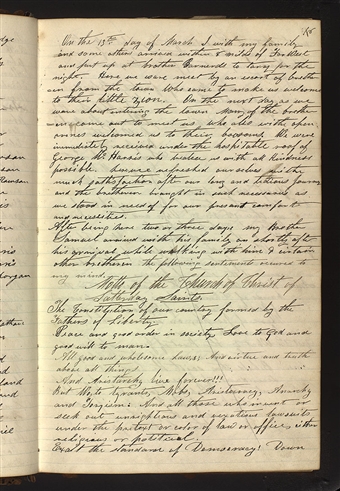 On the 13th day of March I with my family
and some others arrived within 8 miles of Far West
and put up at brother Barnerds to tarry for the
night. Here we were meet by an escort of brethr
en from the town who came to make us welcome
to their little Zion. On the next day as we
were about entering the town Many of the brethr
en came out to meet us who also with open
armes welcomed us to their boosoms. We were
immediately received under the hospitable roof of
George W. Harris who treated us with all kindness
possible. here we refreshed ourselves with
much satisfaction after our long and tedious journey
and the brethren braught in such necessaries as
we stood in need of for our present comfort
and necessities.
After being here two or three days my Brother
Samuel arrived with his family an shortly after
his arrival while walking with him & certain
other bretheren the following sentiments occured to
my mind.
Motto of the Church of Christ of
Latterday Saints.
The Constitution of our country formed by the
Fathers of Liberty.
Peace and good order in society Love to God and
good will to man.
All good and wholesome laws; And virtue and truth
above all things
And Aristarchy live forever!!!
But Wo, to tyrants, Mobs, Aristocracy, Anarchy
and Toryism: And all those who invent or
seek out unrighteous and vexatious lawsuits
under the pretext or color of law or office, either
religious or political.
Exalt the standard of Democracy! Down